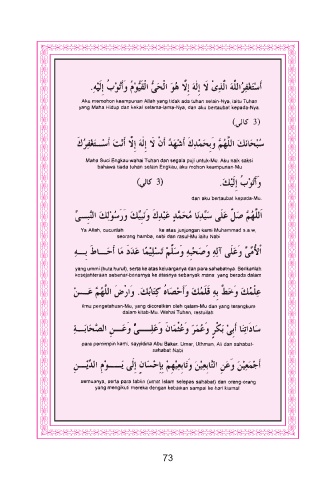 أَسْتَغْفِرُ اللَّهَ الَّذِيْ لَا إِلَهَ إِلَّا هُوَ الْحَيُّ الْقَيُّوْمُ وَأَتُوْبُ إِلَيْهِ.
Aku memohon keampunan Allah yang tidak ada tuhan selain-Nya, Iaitu Tuhan
yang Maha Hidup dan kekal selama-lama-Nya, dan aku bertaubat kepada-Nya.
(3 كالي)
سُبْحَانَكَ اللَّهُمَّ وَبِحَمْدِكَ أَشْهَدُ أَنْ لَا إِلَهَ إِلَّا أَنْتَ أَسْتَغْفِرُكَ
Maha Suci Engkau wahai Tuhan dan segala puji untuk-Mu. Aku naik saksi
bahawa tiada tuhan selain Engkau, aku mohon keampunan-Mu
وَأَتُوْبُ إِلَيْكَ. (3 كالي)
dan aku bertaubat kepada-Mu.
اَللَّهُمَّ صَلِّ عَلَى سَيِّدِنَا مُحَمَّدٍ عَبْدِكَ وَنَبِيِّكَ وَرَسُوْلِكَ النَّبِيِّ
Ya Allah, cucurilah ke atas junjungan kami Muhammad s.a.w,
seorang hamba, nabi dan rasul-Mu iaitu Nabi
الْأُمِّيِّ وَعَلَى آلِهِ وَصَحْبِهِ وَسَلِّمْ تَسْلِيْمًا عَدَدَ مَا أَحَاطَ بِهِ
yang ummi (buta huruf), serta ke atas keluarganya dan para sahabatnya. Berikanlah
kesejahteraan sebenar-benarnya ke atasnya sebanyak mana yang berada dalam
عِلْمُكَ وَخَطَّ بِهِ قَلَمُكَ وَأَحْصَاهُ كِتَابُكَ. وَارْضَ اللَّهُمَّ عَنْ
ilmu pengetahuan-Mu, yang dicoretkan oleh qalam-Mu dan yang terangkum
dalam kitab-Mu. Wahai Tuhan, restuilah
سَادَاتِنَا أَبِيْ بَكْرٍ وَعُمَرَ وَعُثْمَانَ وَعَلِيٍّ وَعَنِ الصَّحَابَةِ
para pemimpin kami, sayyidina Abu Bakar, Umar, Uthman, Ali dan sahabat-
sahabat Nabi
أَجْمَعِيْنَ وَعَنِ التَّابِعِيْنَ وَتَابِعِيْهِمْ بِإِحْسَانٍ إِلَى يَوْمِ الدِّيْنِ
semuanya, serta para tabiin (umat Islam selepas sahabat) dan orang-orang
yang mengikuti mereka dengan kebaikan sampai ke hari kiamat
73